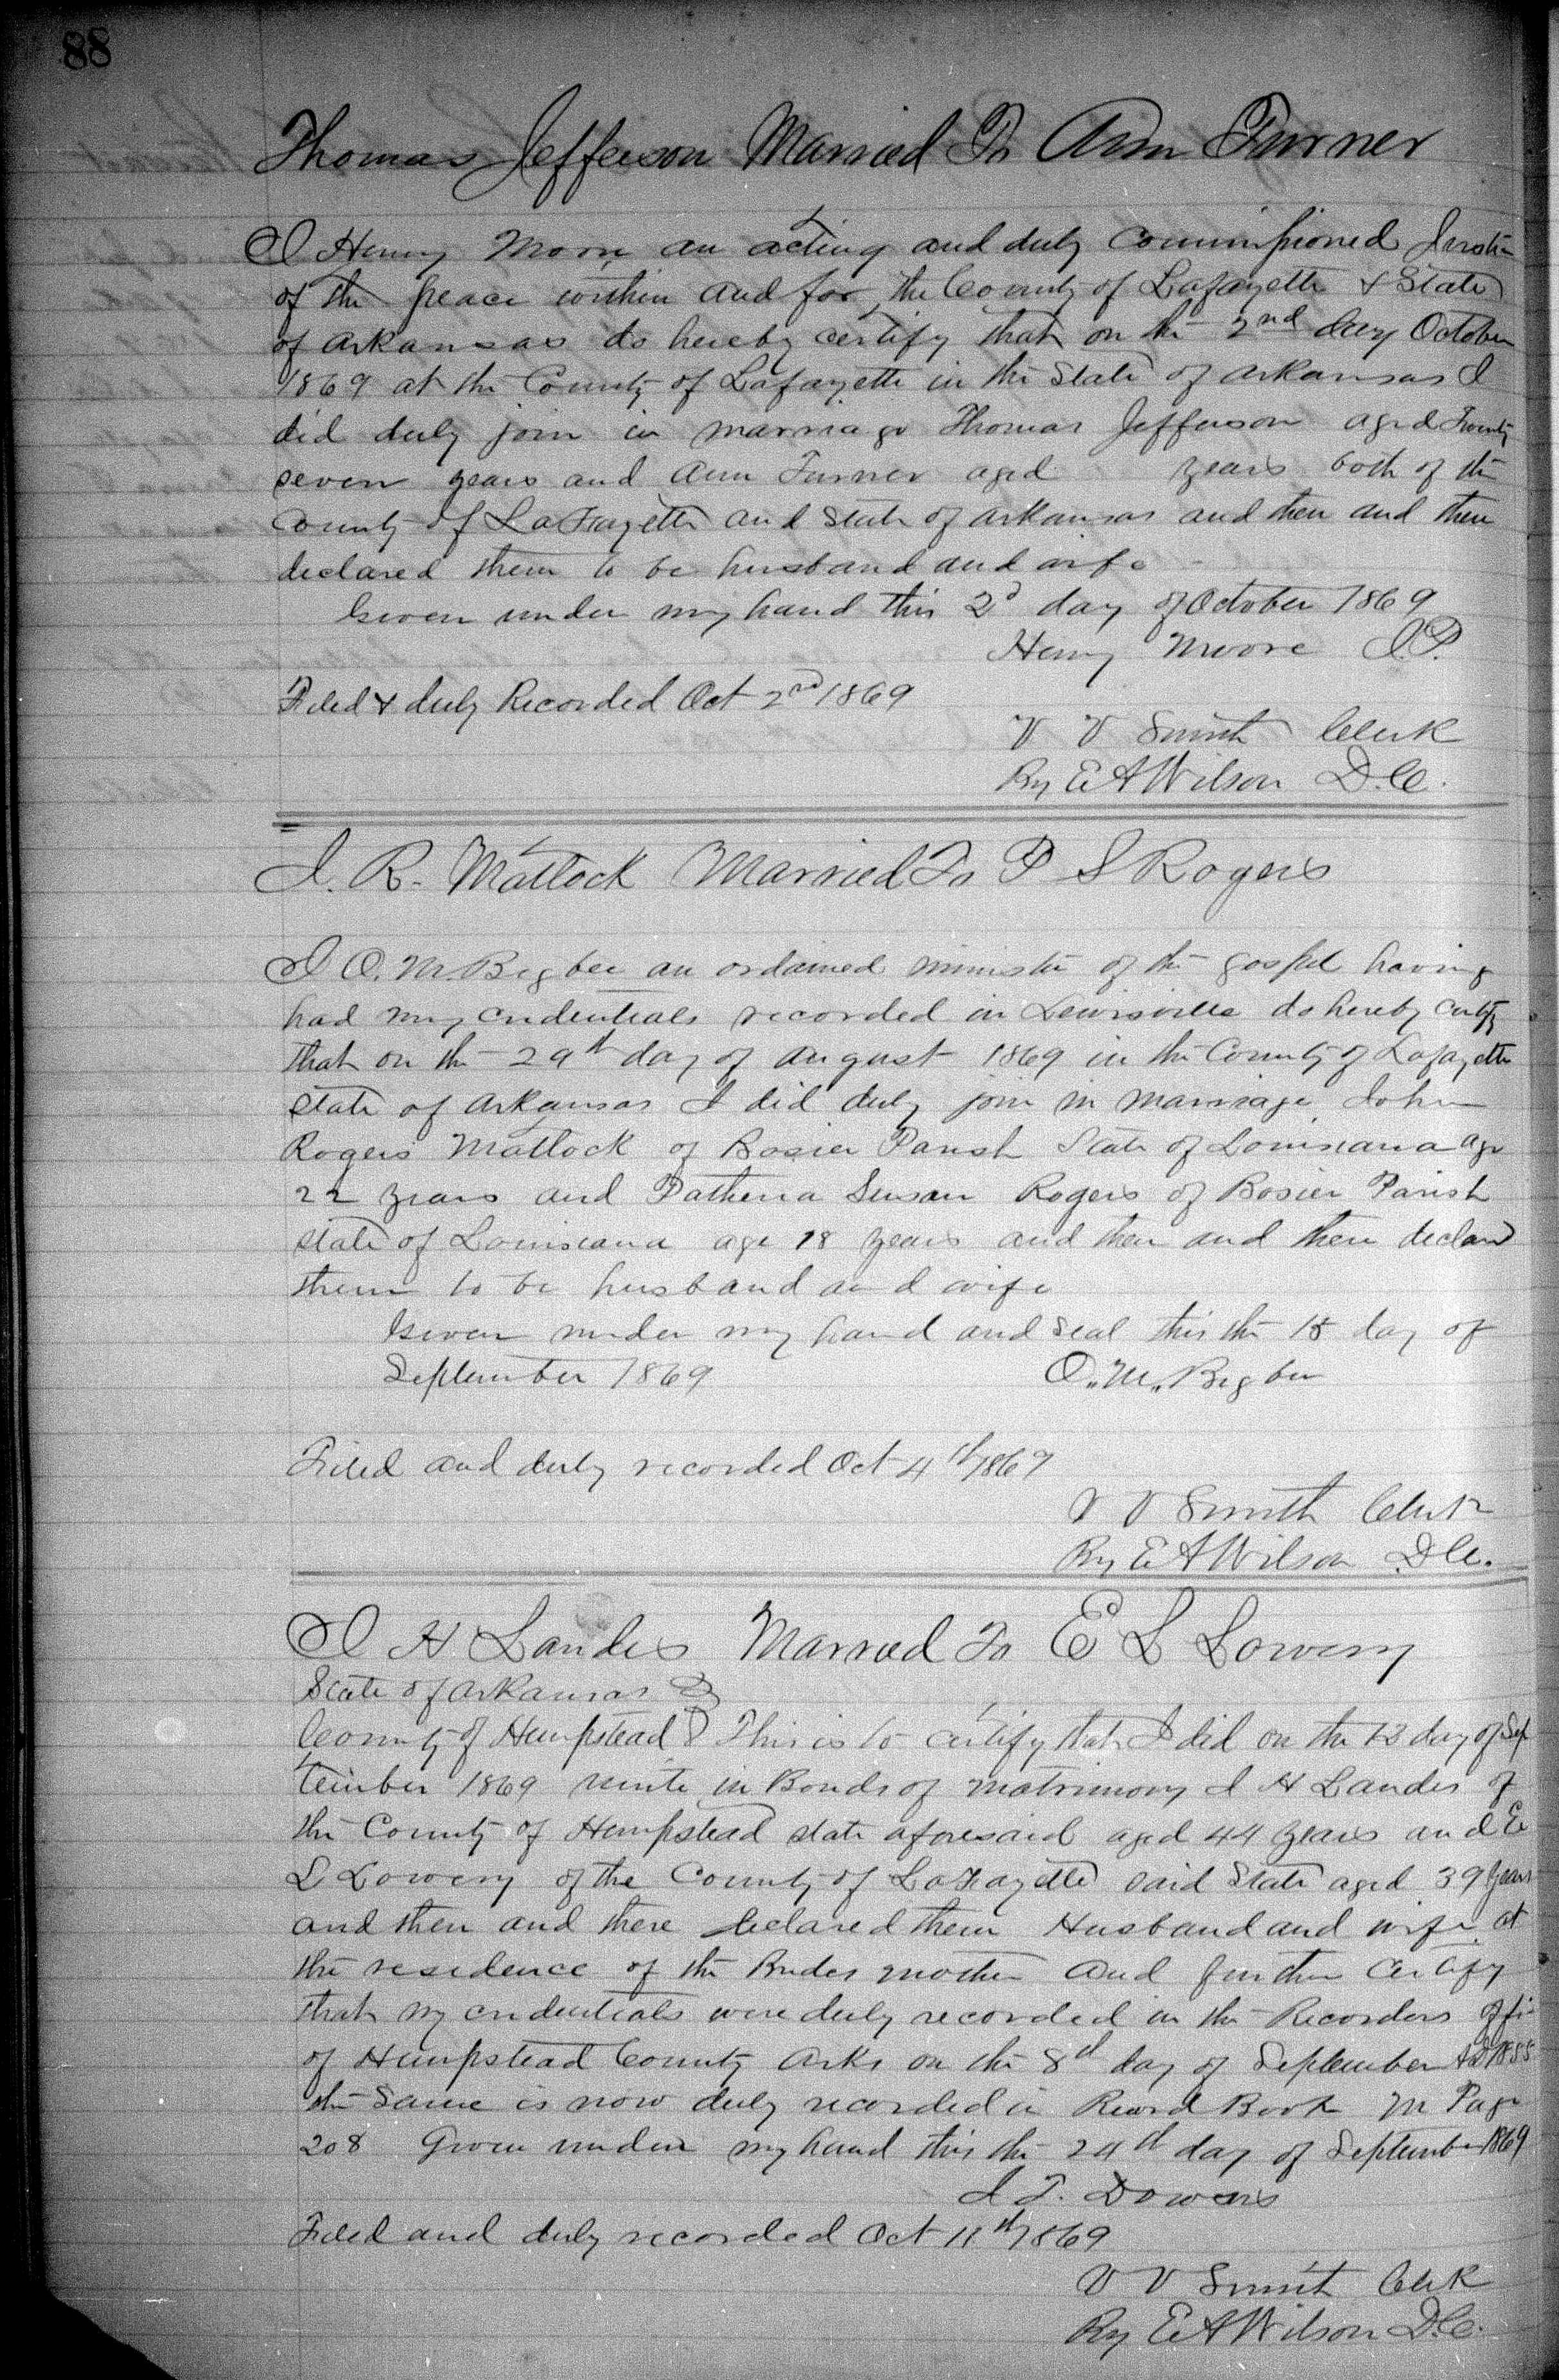 88
Thomas Jefferson Married To Ann Turner
I Henry Moore an acting and duly Commissioned Justice
of the peace within and for the County of Lafayette & State
of Arkansas do hereby certify that on the 2nd day October
1869 at the County of Lafayette in the State of Arkansas I
did duly join in marriage Thomas Jefferson aged Twenty
seven years and Ann Turner aged years both of the
County of LaFayette and State of Arkansas and then and there
declared them to be husband and wife
Given under my hand this 2d day of October 1869
Henry Moore J.P.
Filed & duly Recorded Oct 2nd 1869
V V Smith Clerk
By E A Wilson D.C.
J. R. Matlock Married To P S Rogers
I O. M. Bigbee an ordained minister of the gospel having
had my credentials recorded in Lewisville do hereby certify
that on the 29th day of August 1869 in the County of Lafayette
State of Arkansas I did duly join in marriage John
Rogers Matlock of Bosier Parish State of Louisiana age
22 years and Pathena Susan Rogers of Bosier Parish
state of Louisiana age 18 years and then and there declard
them to be husband and wife
Given under my hand and Seal this the 15 day of
September 1869 O. M. Bigbee
Filed and duly recorded Oct 4th 1869
V V Smith Clerk
By E A Wilson D.C.
J H Landes Married To E L Lowery
State of Arkansas
County of Hempstead This is to certify that I did on the 13 day of Sep
tember 1869 unite in Bonds of matrimony J H Landes of
the County of Hempstead state aforesaid aged 44 years and E
L Lowery of the County of LaFayette said State aged 39 years
and then and there declared them Husband and wife at
the residence of the Brides mother and further Certify
that my credentials were duly recorded in the Recorders offi
of Hempstead County Arks on the 8th day of September AD 1855
the same is now duly recorded in Record Book M Page
208 Given under my hand this the 24th day of September 1869
J. T. Downs
Filed and duly recorded Oct 11th 1869
V V Smith Clerk
By E A Wilson D.C.